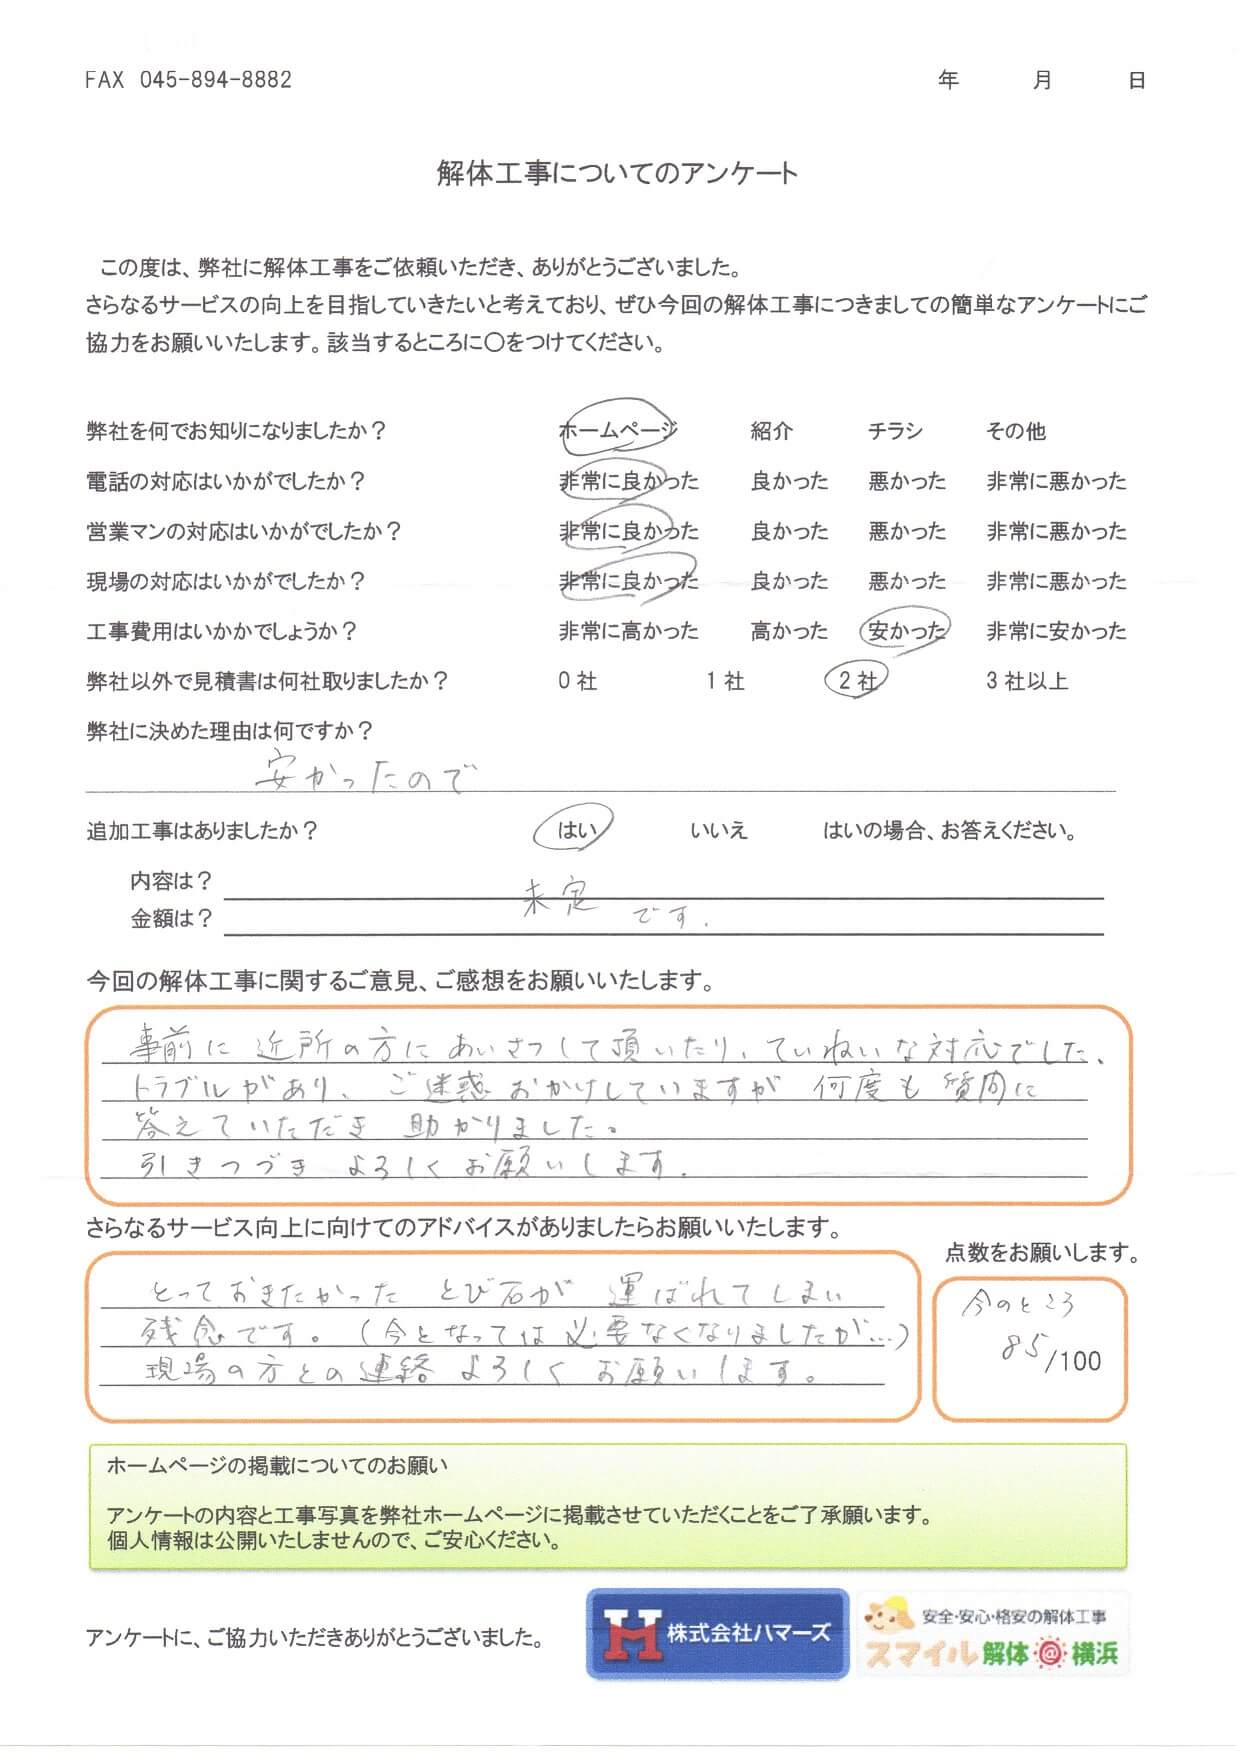 FAX 045-894-8882 年 月 日
解体工事についてのアンケート
この度は、弊社に解体工事をご依頼いただき、ありがとうございました。
さらなるサービスの向上を目指していきたいと考えており、ぜひ今回の解体工事につきましての簡単なアンケートにご
協力をお願いいたします。該当するところに〇をつけてください。
弊社を何でお知りになりましたか？ ホームページ 紹介 チラシ その他
電話の対応はいかがでしたか？ 非常に良かった 良かった 悪かった 非常に悪かった
営業マンの対応はいかがでしたか？ 非常に良かった 良かった 悪かった 非常に悪かった
現場の対応はいかがでしたか？ 非常に良かった 良かった 悪かった 非常に悪かった
工事費用はいかかでしょうか？ 非常に高かった 高かった 安かった 非常に安かった
弊社以外で見積書は何社取りましたか？ 0社 1社 2社 3社以上
弊社に決めた理由は何ですか？
安かったので
追加工事はありましたか？ はい いいえ はいの場合、お答えください。
内容は？ 未定
金額は？ です.
今回の解体工事に関するご意見、ご感想をお願いいたします。
事前に 近所の方に あいさつして頂いたり、ていねいな対応でした、
トラブルがあり、ご迷惑おかけしていますが 何度も質問に
答えていただき 助かりました。
引きつづき よろしくお願いします.
さらなるサービス向上に向けてのアドバイスがありましたらお願いいたします。
点数をお願いします。
とっておきたかった とび石が 運ばれてしまい
残念です。（今となっては必要なくなりましたが…）
現場の方との連絡 よろしく お願いします。
今のところ
85/100
ホームページの掲載についてのお願い
アンケートの内容と工事写真を弊社ホームページに掲載させていただくことをご了承願います。
個人情報は公開いたしませんので、ご安心ください。
アンケートに、ご協力いただきありがとうございました。
H 株式会社ハマーズ
安全・安心・格安の解体工事
スマイル解体@横浜